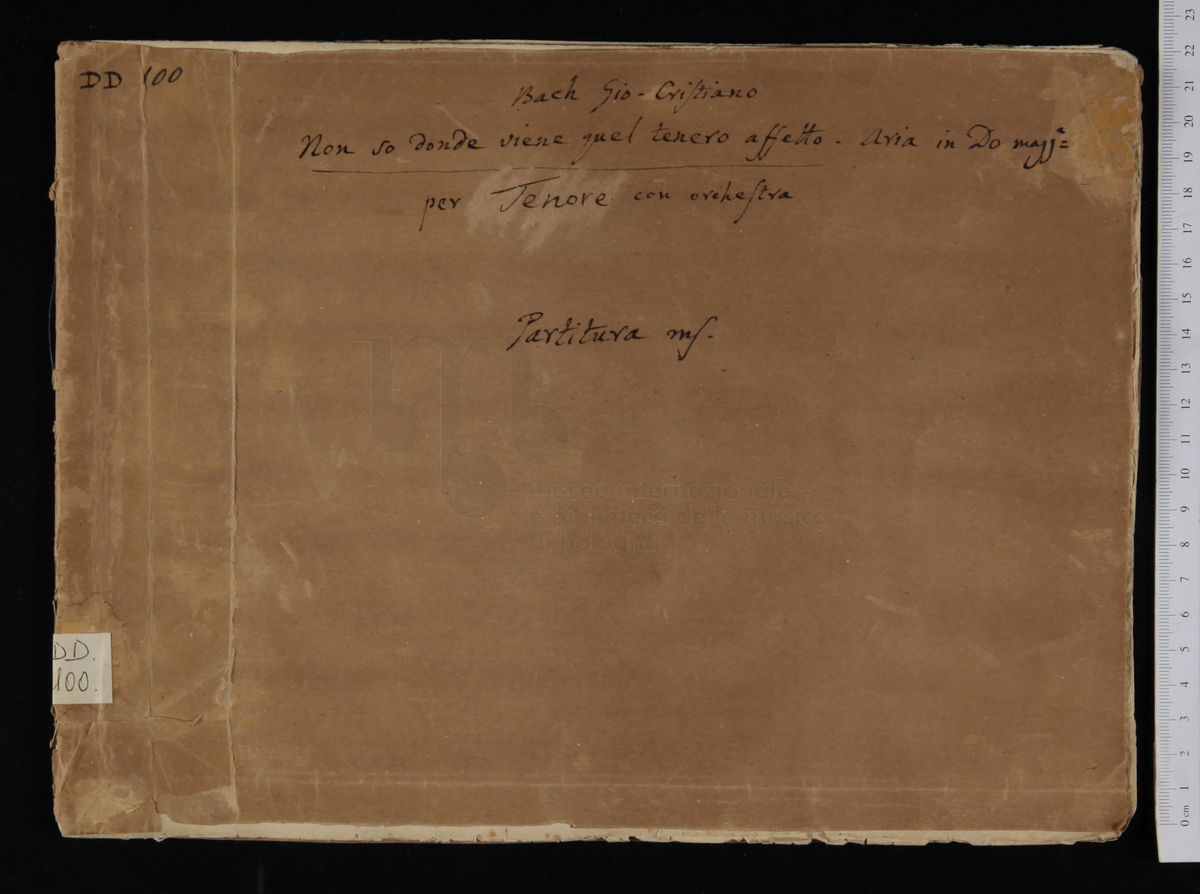 DD 100
Bach Gio-Cristiano
Non so donde viene quel tenero affetto. Aria in Do magg.e
per Tenore con orchestra
Partitura ms.
museo internazionale
biblioteca della musica
bologna
DD.
100.
0 cm 1 2 3 4 5 6 7 8 9 10 11 12 13 14 15 16 17 18 19 20 21 22 23